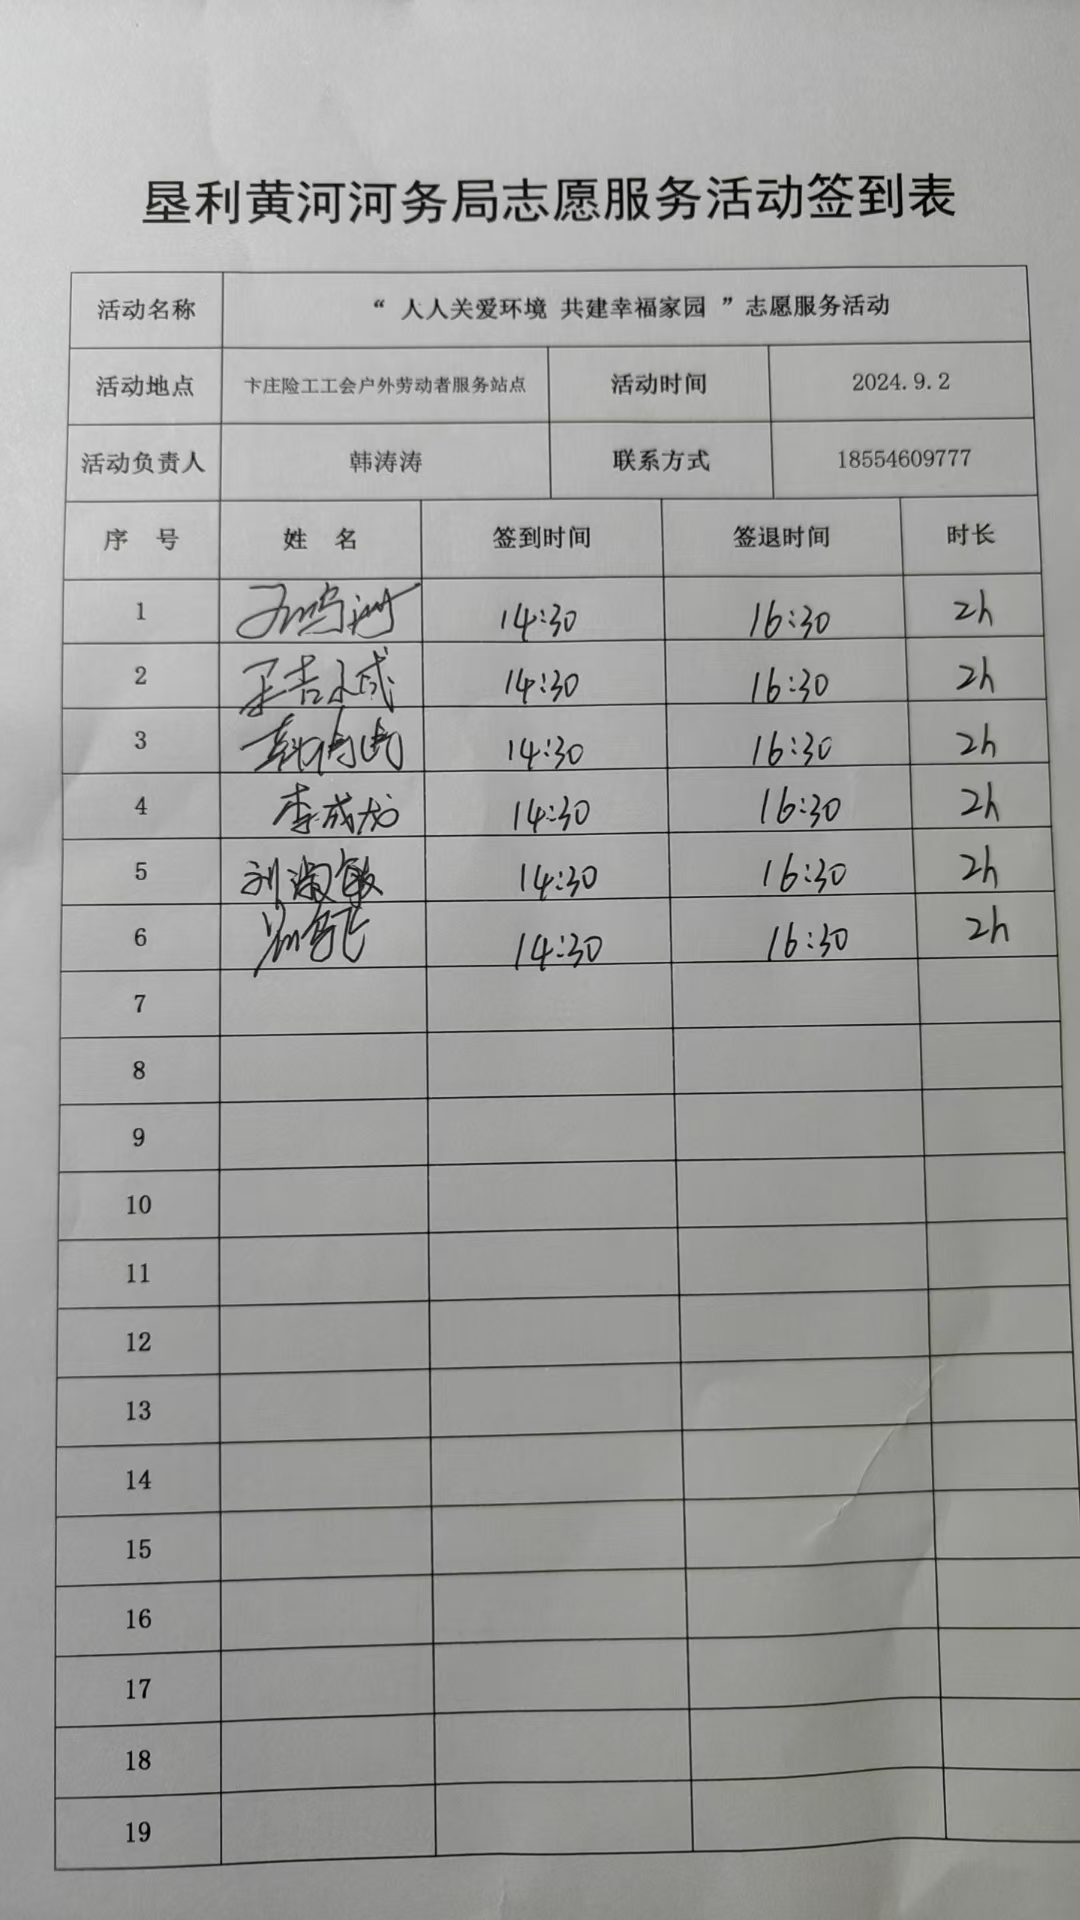 垦利黄河河务局志愿服务活动签到表
活动名称 “ 人人关爱环境 共建幸福家园 ”志愿服务活动
活动地点 卞庄险工工会户外劳动者服务站点 活动时间 2024.9.2
活动负责人 韩涛涛 联系方式 18554609777
序 号 姓 名 签到时间 签退时间 时长
1 14:30 16:30 2h
2 14:30 16:30 2h
3 韩涛涛 14:30 16:30 2h
4 李成龙 14:30 16:30 2h
5 刘淑敏 14:30 16:30 2h
6 14:30 16:30 2h
7
8
9
10
11
12
13
14
15
16
17
18
19